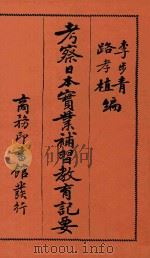 李步青
路孝植 編
考察日本實業補習教育記要
商務印書館發行
mtoou.info